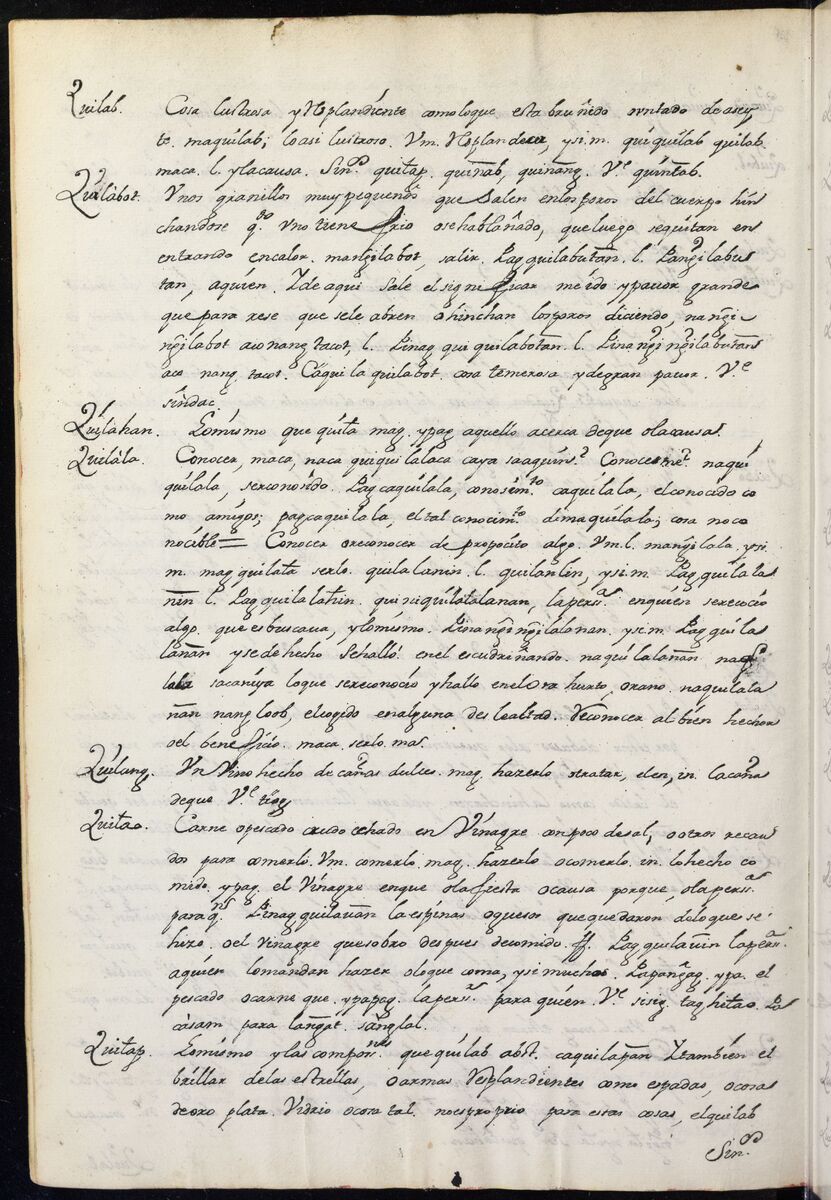 Quilab. Cosa lustrosa y Resplandiente como loque esta bruñido ountado de asey
te. maquilab; lo asi lustroso. Vm. Resplandecer, y si.m. quiquilab quilab.
maca. l. y la causa. Sin.os quitap. quinab, quinang. V.e quintab.
Quilabot. Vnos granillos muy pequenos que salen en los poros del cuerpo hin
chandose q.do vno tiene frio o se hablando, que luego se quitan en
entrando en calor. mangilabot, salir. Pag quilabutan. l. Pangilabu
tan, aquien. Y de aqui sale el significar miedo y pavor grande
que para rese que se le abren o hinchan los poros diciendo, nangi
ngilabot aco nang tacot, l. Pinag quiquilabotan. l. Pinangingilabutan
aco nang tacot. Caquilaquilabot. cosa temerosa y de gran pavor. V.e
sindac.
Quilahan. Lo mismo que quita mag. ypag aquello acerca de que o la causa.
Quilala. Conocer, maca, naca quiquilalaca caya sa aquin? Conoces me? naqui
quilala, ser conosido. Pag caquilala, conosim.to caquilala, el conocido co
mo amigos; pagcaquilala, el tal conocim.to dimaquilala; cosa no co
nocible = Conocer o reconocer de proposito algo. Vm. l. mangilala. y si.
m. mag quilala serlo. quilalanin. l. quilanlin, y si.m. Pag quilala
nin l. Pag quilalahin. quiniquilalalanan, la pers.a enquien se reconocio
algo. que es buscava, y lo mismo. Pinangingilalanan. y si.m. Pag quila
lanan y se de hecho se hallò. en el escudriñando. naquilalanan
sa caniya lo que se reconocio y hallo en el ora hurto, orano. naquilala
nan nang loob, el cogido en alguna deslealtad. Reconocer al bien hechor
o el beneficio. maca. serlo. ma.
Quilang. Vn Vino hecho de cañas dulces. mag. hazerlo o tratar, el en, in. la caña
de que V.e
Quilao. Carne o pescado crudo echado en Vinagre con poco de sal, o otros recau
dos para comerlo. Vm. comerlo. mag. hazerlo o comerlo. in. lo hecho co
mido. y pag. el Vinagre en que o la fiesta o causa porque, o la pers.as
para q.n Pinag quilauan la espinas o guesos que quedaron de lo que se
hizo. o el vinagre que sobro despues de comido. ff. Pag quilauin la pers.a
a quien lo mandan hazer o lo que coma, y si muchos Papangag. ypa. el
pescado o carne que. ypapag. la pers.a para quien. V.e sisig. taghilao. Pa
casam para langat. sanglal.
Quilap. Lo mismo y las compon.nes que quilab abst. caquilapan Y tambien el
brillar de las estrellas, o armas Resplandientes como espadas, o cosas
de oro plata. Vidrio o cosa tal. no es proprio para estas cosas, el quilab
Sin.os